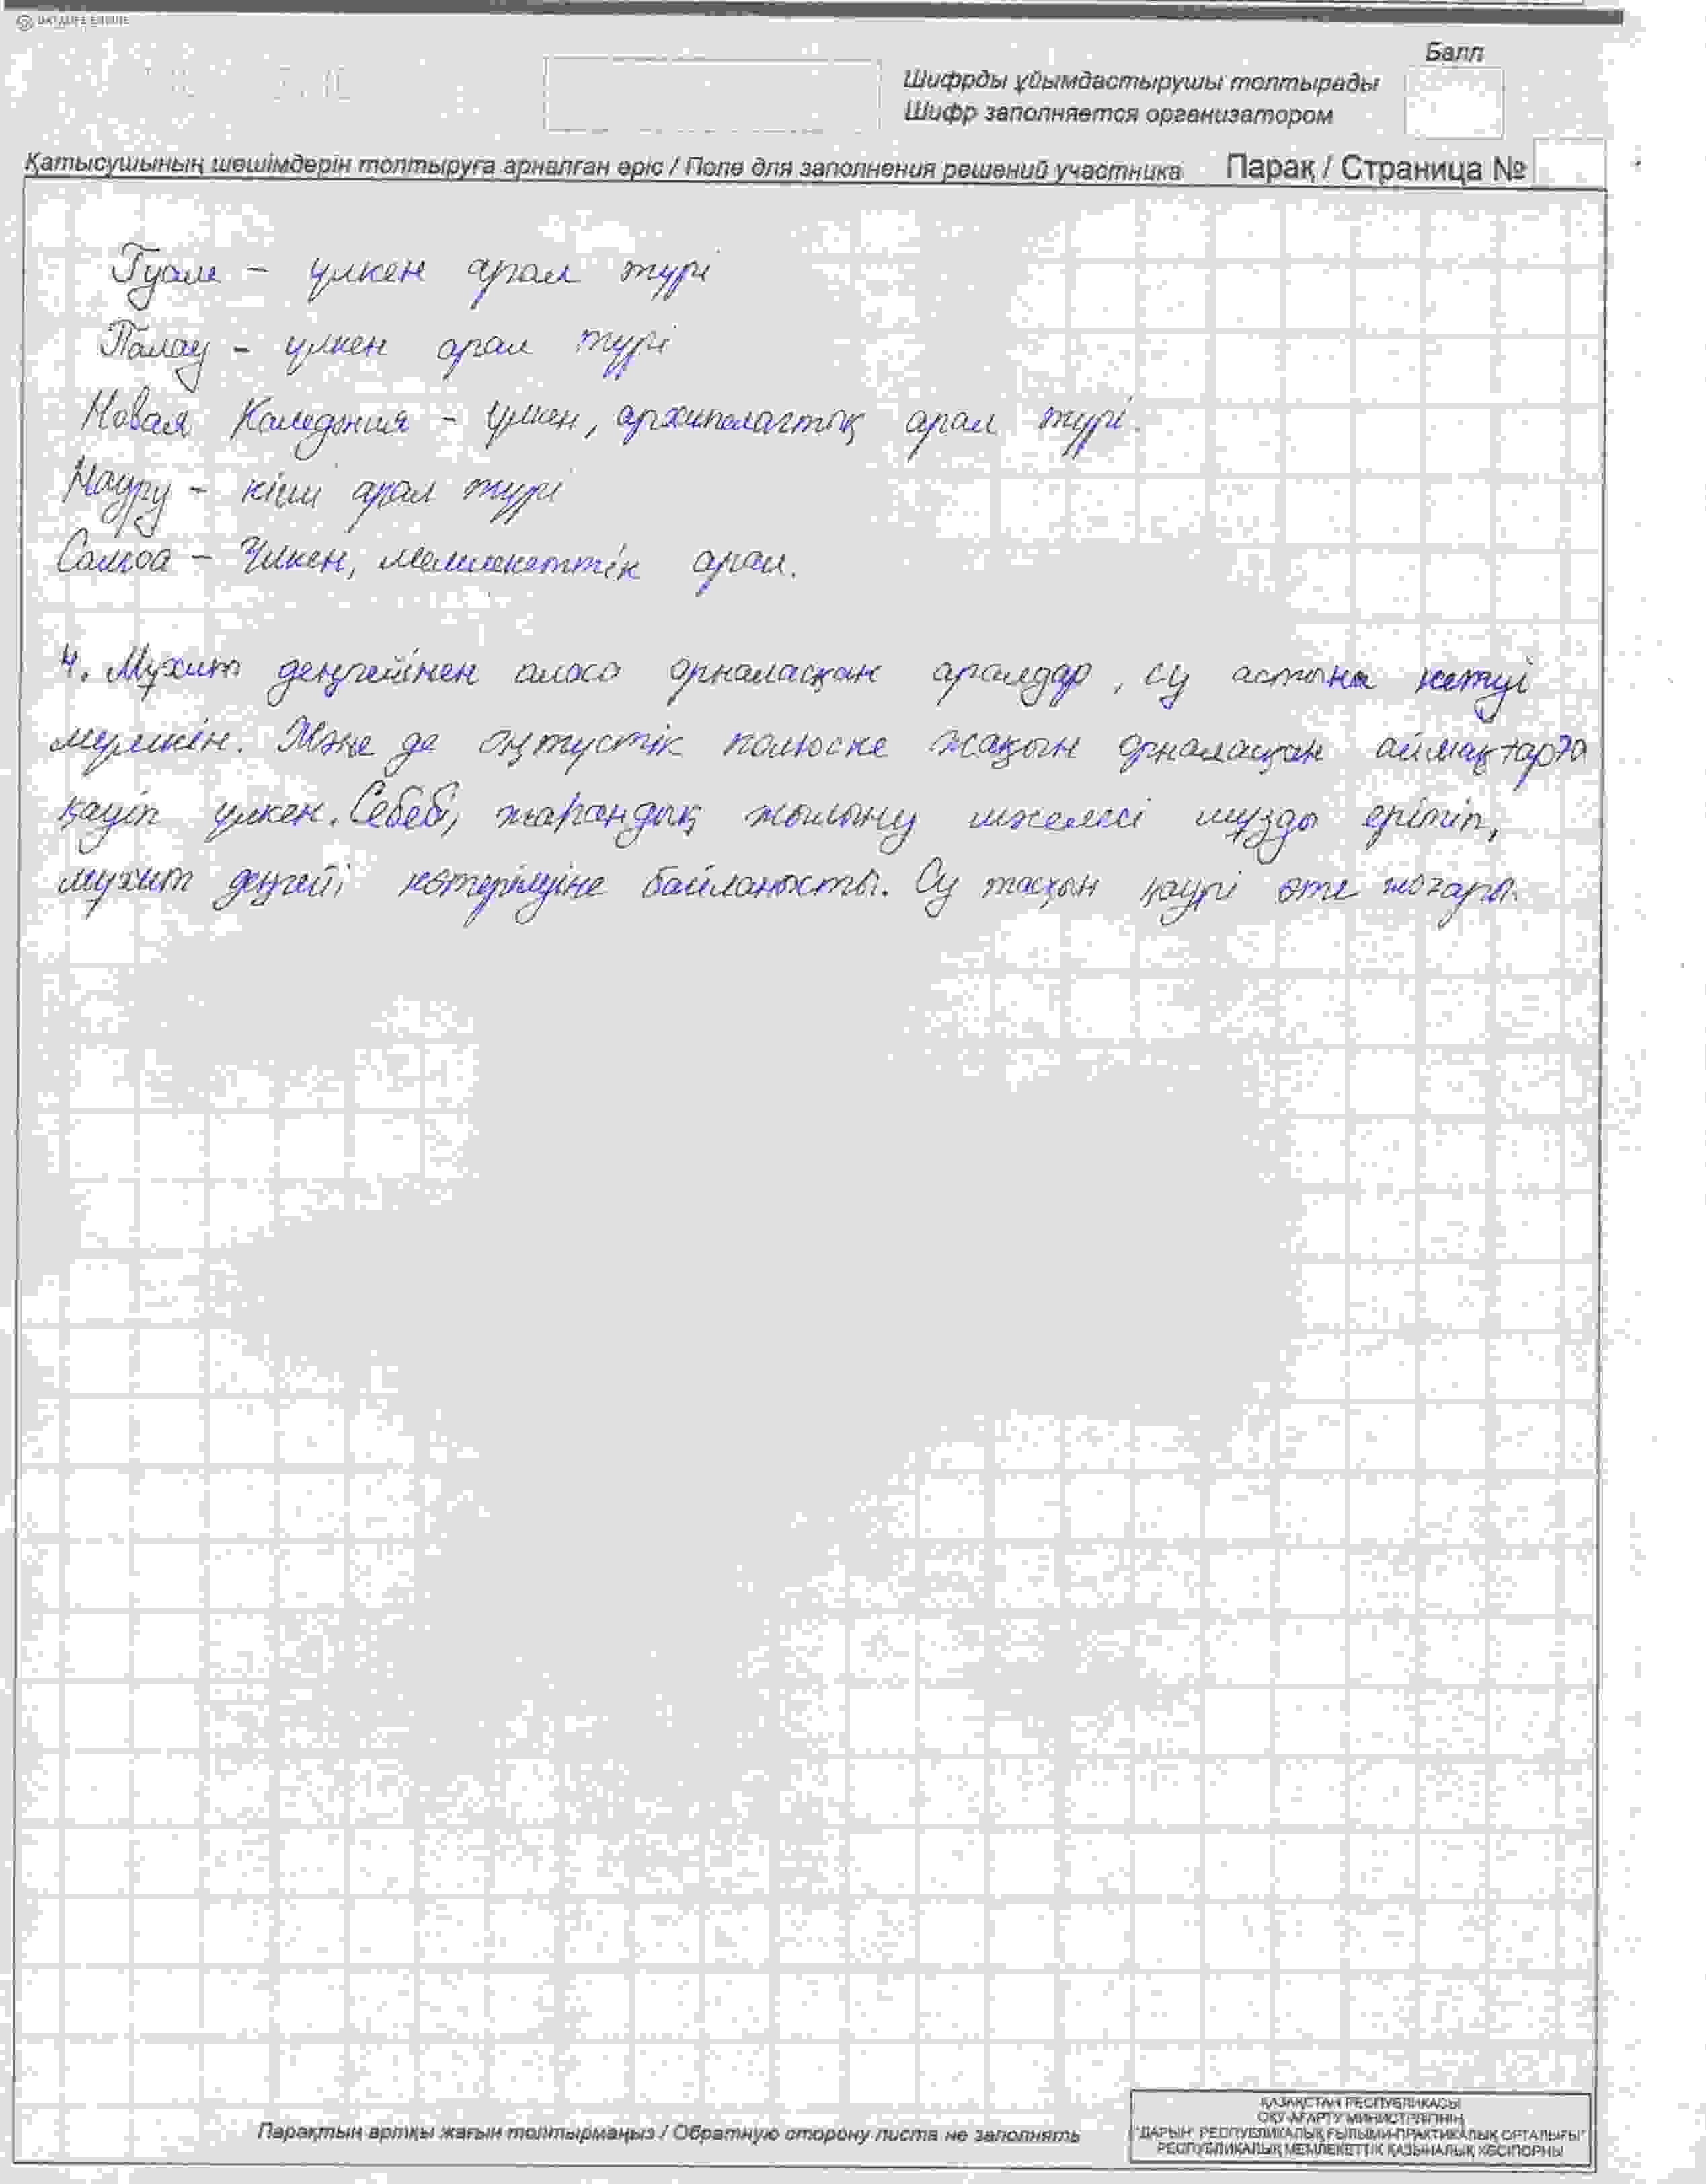 Балл
Шифрды ұйымдастырушы толтырады
Шифр заполняется организатором
Қатысушының шешімдерін толтыруға арналған өріс / Поле для заполнения решений участника Парақ / Страница №
Гуам - үлкен арал түрі
Палау - үлкен арал түрі
Новая Каледония - үлкен, архипелагтық арал түрі.
Науру - кіші арал түрі
Самоа - Үлкен, мемлекеттік арал.
4. Мұхит деңгейінен аласа орналасқан аралдар, су астына кетуі
мүмкін. Және де оңтүстік полюске жақын орналасқан аймақтарға
қауіп үлкен. Себебі, жаһандық жылыну мұзды ерітіп,
мұхит деңгейі көтерілуіне байланысты. Су тасқын қаупі өте жоғары.
Парақтын артқы жағын толтырмаңыз / Обратную сторону листа не заполнять
ҚАЗАҚСТАН РЕСПУБЛИКАСЫ
ОҚУ-АҒАРТУ МИНИСТРЛІГІНІҢ
"ДАРЫН" РЕСПУБЛИКАЛЫҚ ҒЫЛЫМИ-ПРАКТИКАЛЫҚ ОРТАЛЫҒЫ"
РЕСПУБЛИКАЛЫҚ МЕМЛЕКЕТТІК ҚАЗЫНАЛЫҚ КӘСІПОРНЫ